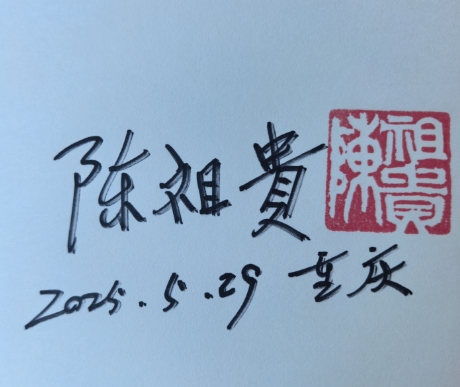 陈祖貴
陳祖貴
2025.5.29 重庆